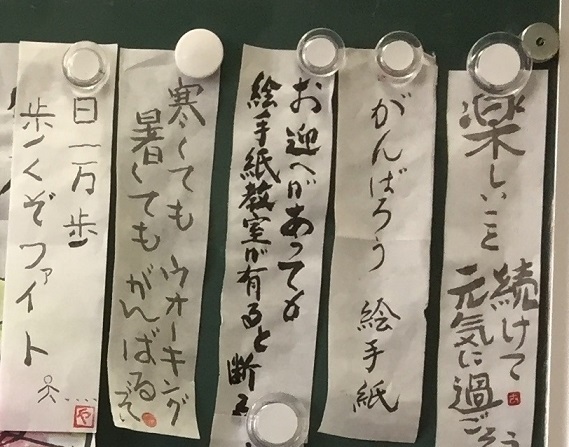 楽しいこと
続けて
元気に過ごそう
がんばろう 絵手紙
お迎へがあっても
絵手紙教室が有ると断る
寒くても ウオーキング
暑くても がんばるぞ
日一万歩
歩くぞファイト